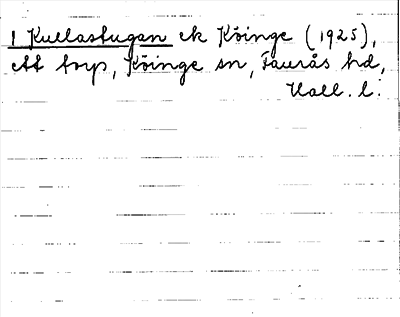 1 Kullastugan ek Köinge (1925),
ett torp, Köinge sn, Faurås hd,
Hall. l.